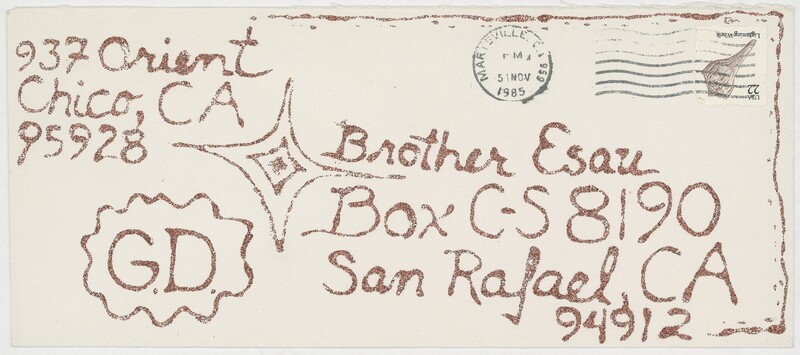 937 Orient
Chico, CA
95928
G.D.
MARYSVILLE, CA 959
PM
5 NOV
1985
Lightning Whelk
USA
22
Brother Esau
Box C-S 8190
San Rafael, CA
94912